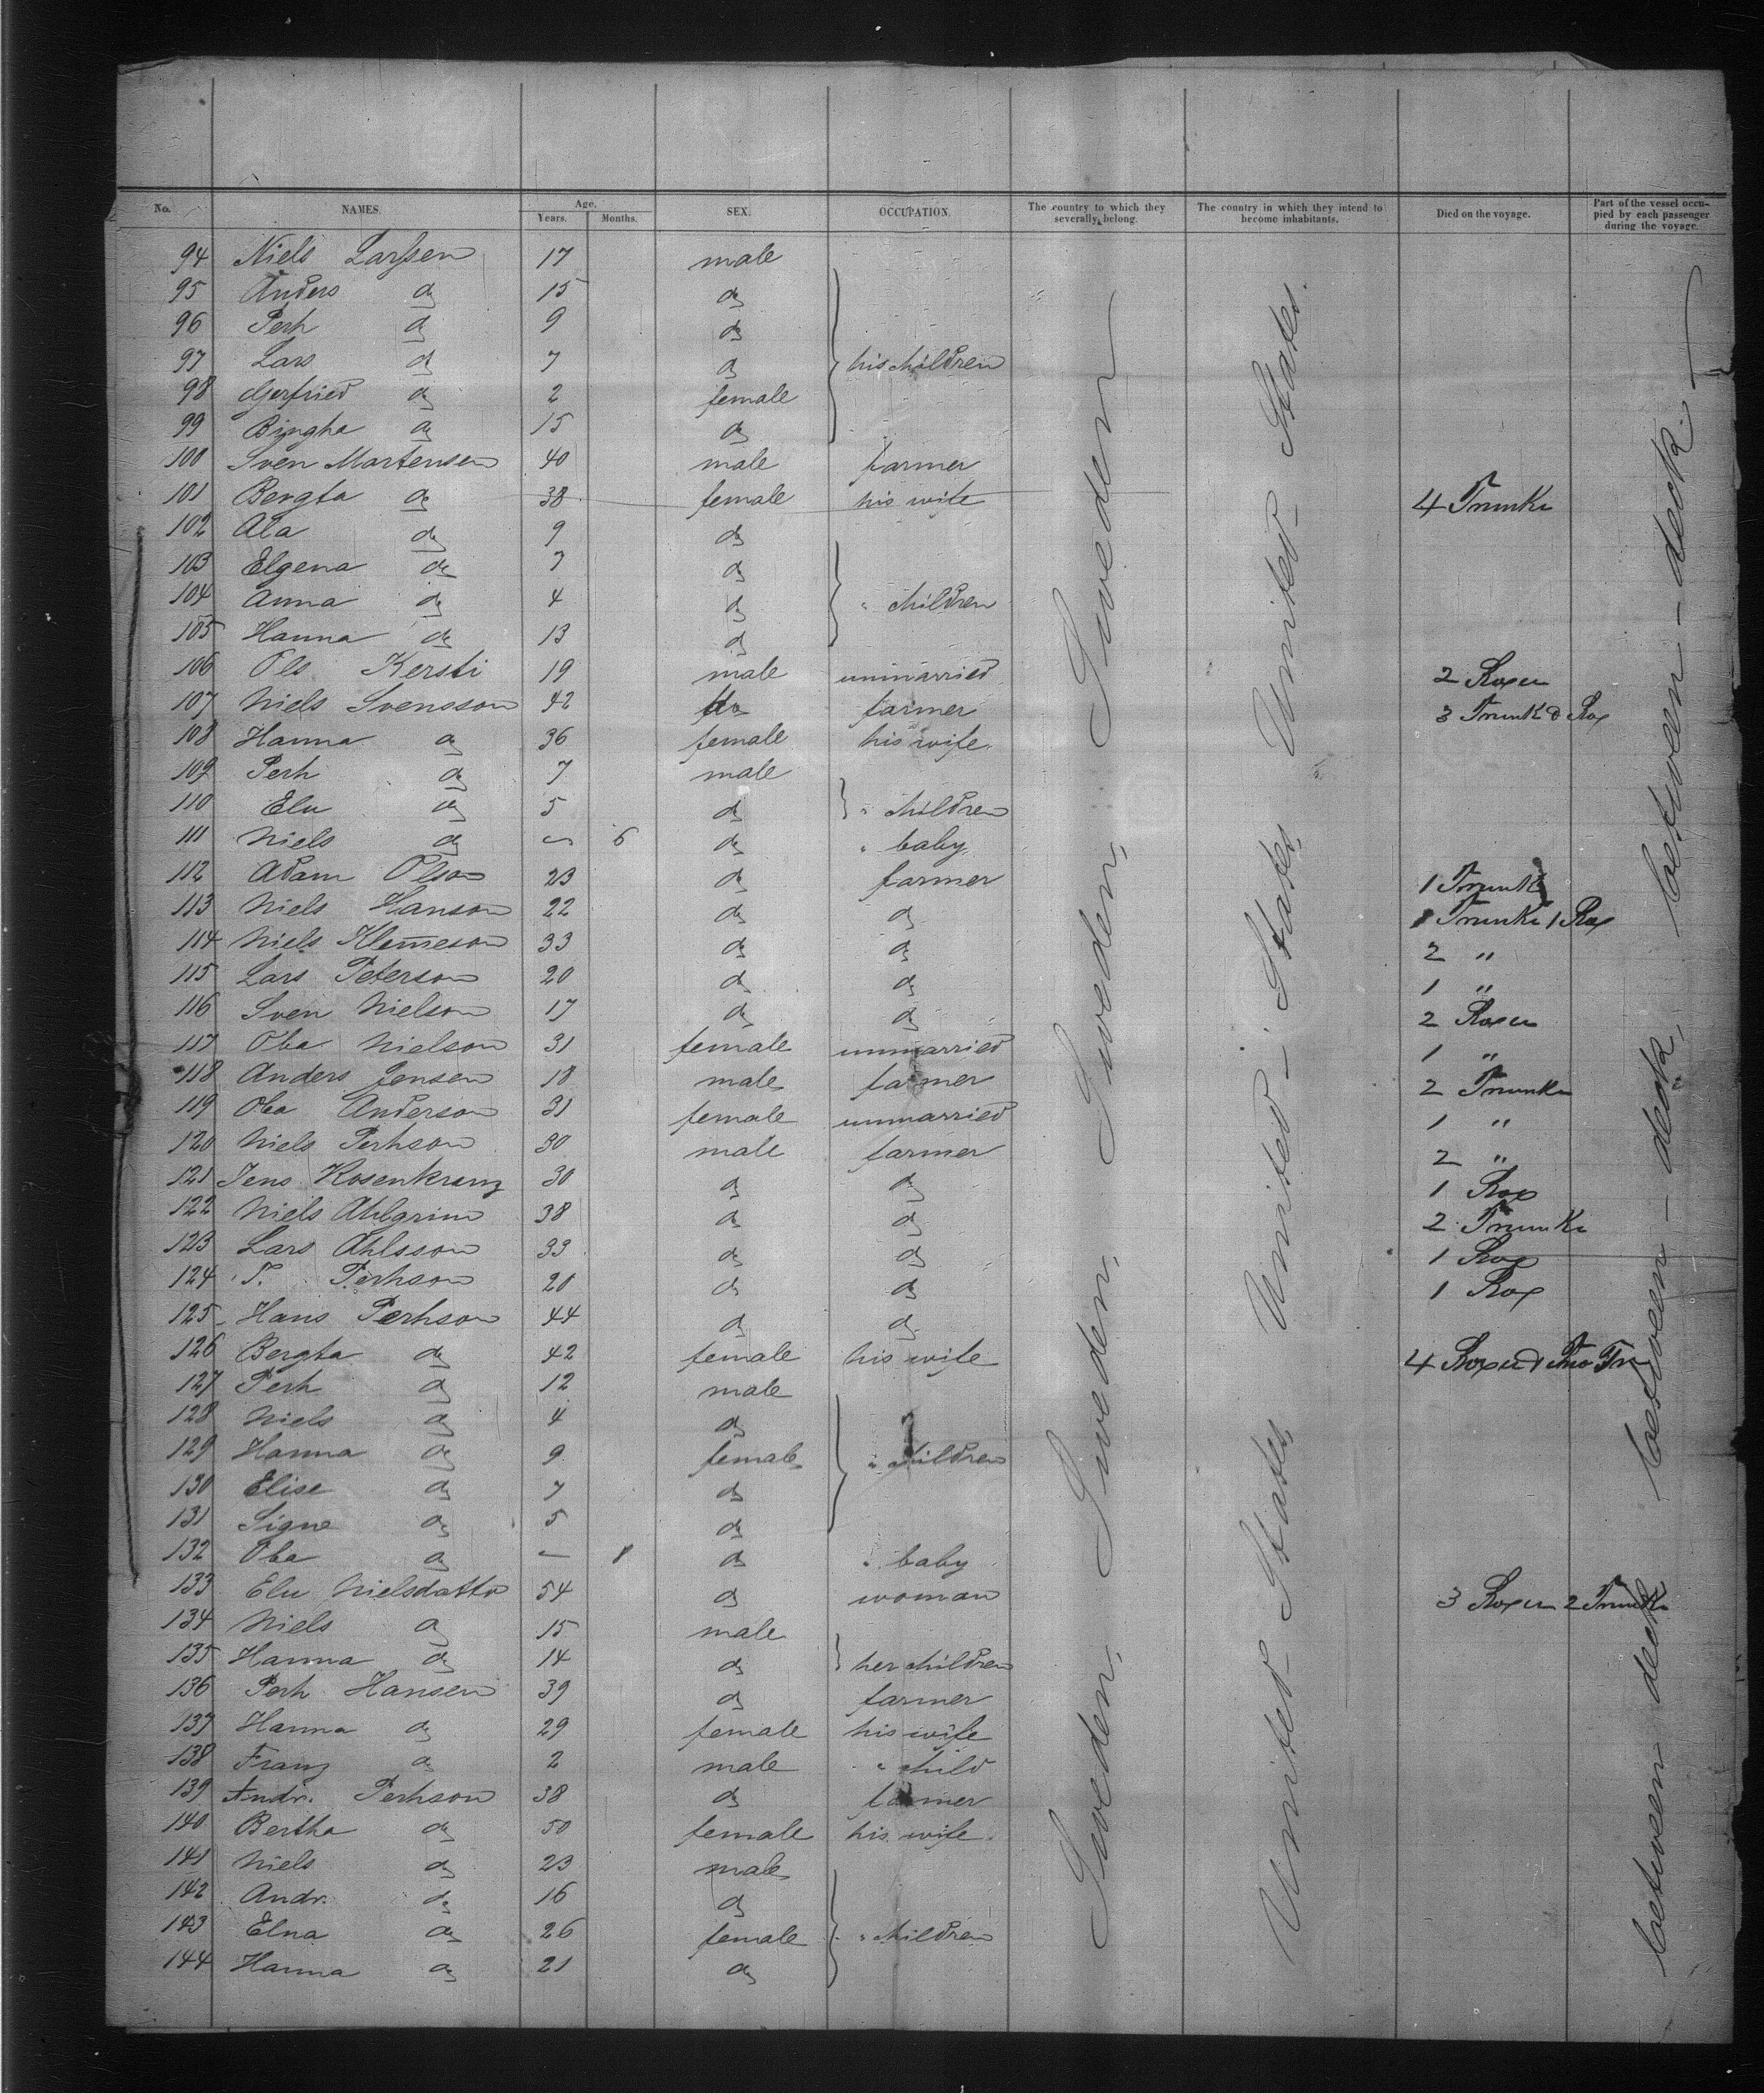 No. NAMES. Age. Years. Months. SEX. OCCUPATION. The country to which they severally belong. The country in which they intend to become inhabitants. Died on the voyage. Part of the vessel occupied by each passenger during the voyage.
94 Niels Larssen 17 male
95 Anders do 15 do
96 Perh do 9 do
97 Lars do 7 do his children
98 do 2 female
99 Bingha do 15 do
100 Sven Martensen 40 male farmer
101 Bengta do 38 female his wife 4 Trunks
102 Ala do 9 do
103 Elgena do 7 do
104 Anna do 4 do " children
105 Hanna do 13 do
106 Ols Kersti 19 male unmarried 2 Boxes
107 Niels Svensson 42 do farmer 3 Trunk & Box
108 Hanna do 36 female his wife
109 Perh do 7 male
110 Elu do 5 do " children
111 Niels do — 6 do " baby
112 Adam Olson 23 do farmer 1 Trunk
113 Niels Hanson 22 do do 1 Trunks 1 Box
114 Niels Klemeson 33 do do 2 "
115 Lars Peterson 20 do do 1 "
116 Sven Nielson 17 do do 2 Boxes
117 Oba Nielson 31 female unmarried 1 "
118 Anders Jensen 18 male farmer 2 Trunks
119 Oba Anderson 31 female unmarried 1 "
120 Niels Perhson 30 male farmer 2 "
121 Jens Rosenkranz 30 do do 1 Box
122 Niels Ahlgrim 38 do do 2 Trunks
123 Lars Ahlsson 33 do do 1 Box
124 T. Perhson 20 do do 1 Box
125 Hans Perhson 44 do do
126 Bengta do 42 female his wife 4 Boxes & Two Tr
127 Perh do 12 male
128 Niels do 4 do
129 Hanna do 9 female " children
130 Elise do 7 do
131 Signe do 5 do
132 Oba do — 8 do " baby
133 Elu Nielsdatto 54 do woman 3 Boxes 2 Trunks
134 Niels do 15 male
135 Hanna do 14 do her children
136 Perh Hansen 39 do farmer
137 Hanna do 29 female his wife
138 Franz do 2 male " child
139 Andr. Perhson 38 do farmer
140 Bertha do 50 female his wife
141 Niels do 23 male
142 Andr. do 16 do
143 Elna do 26 female " children
144 Hanna do 21 do
Sweden, Sweden, Sweden, Sweden, Sweden
United States United States, United States, United States.
between deck between-deck, between-deck.